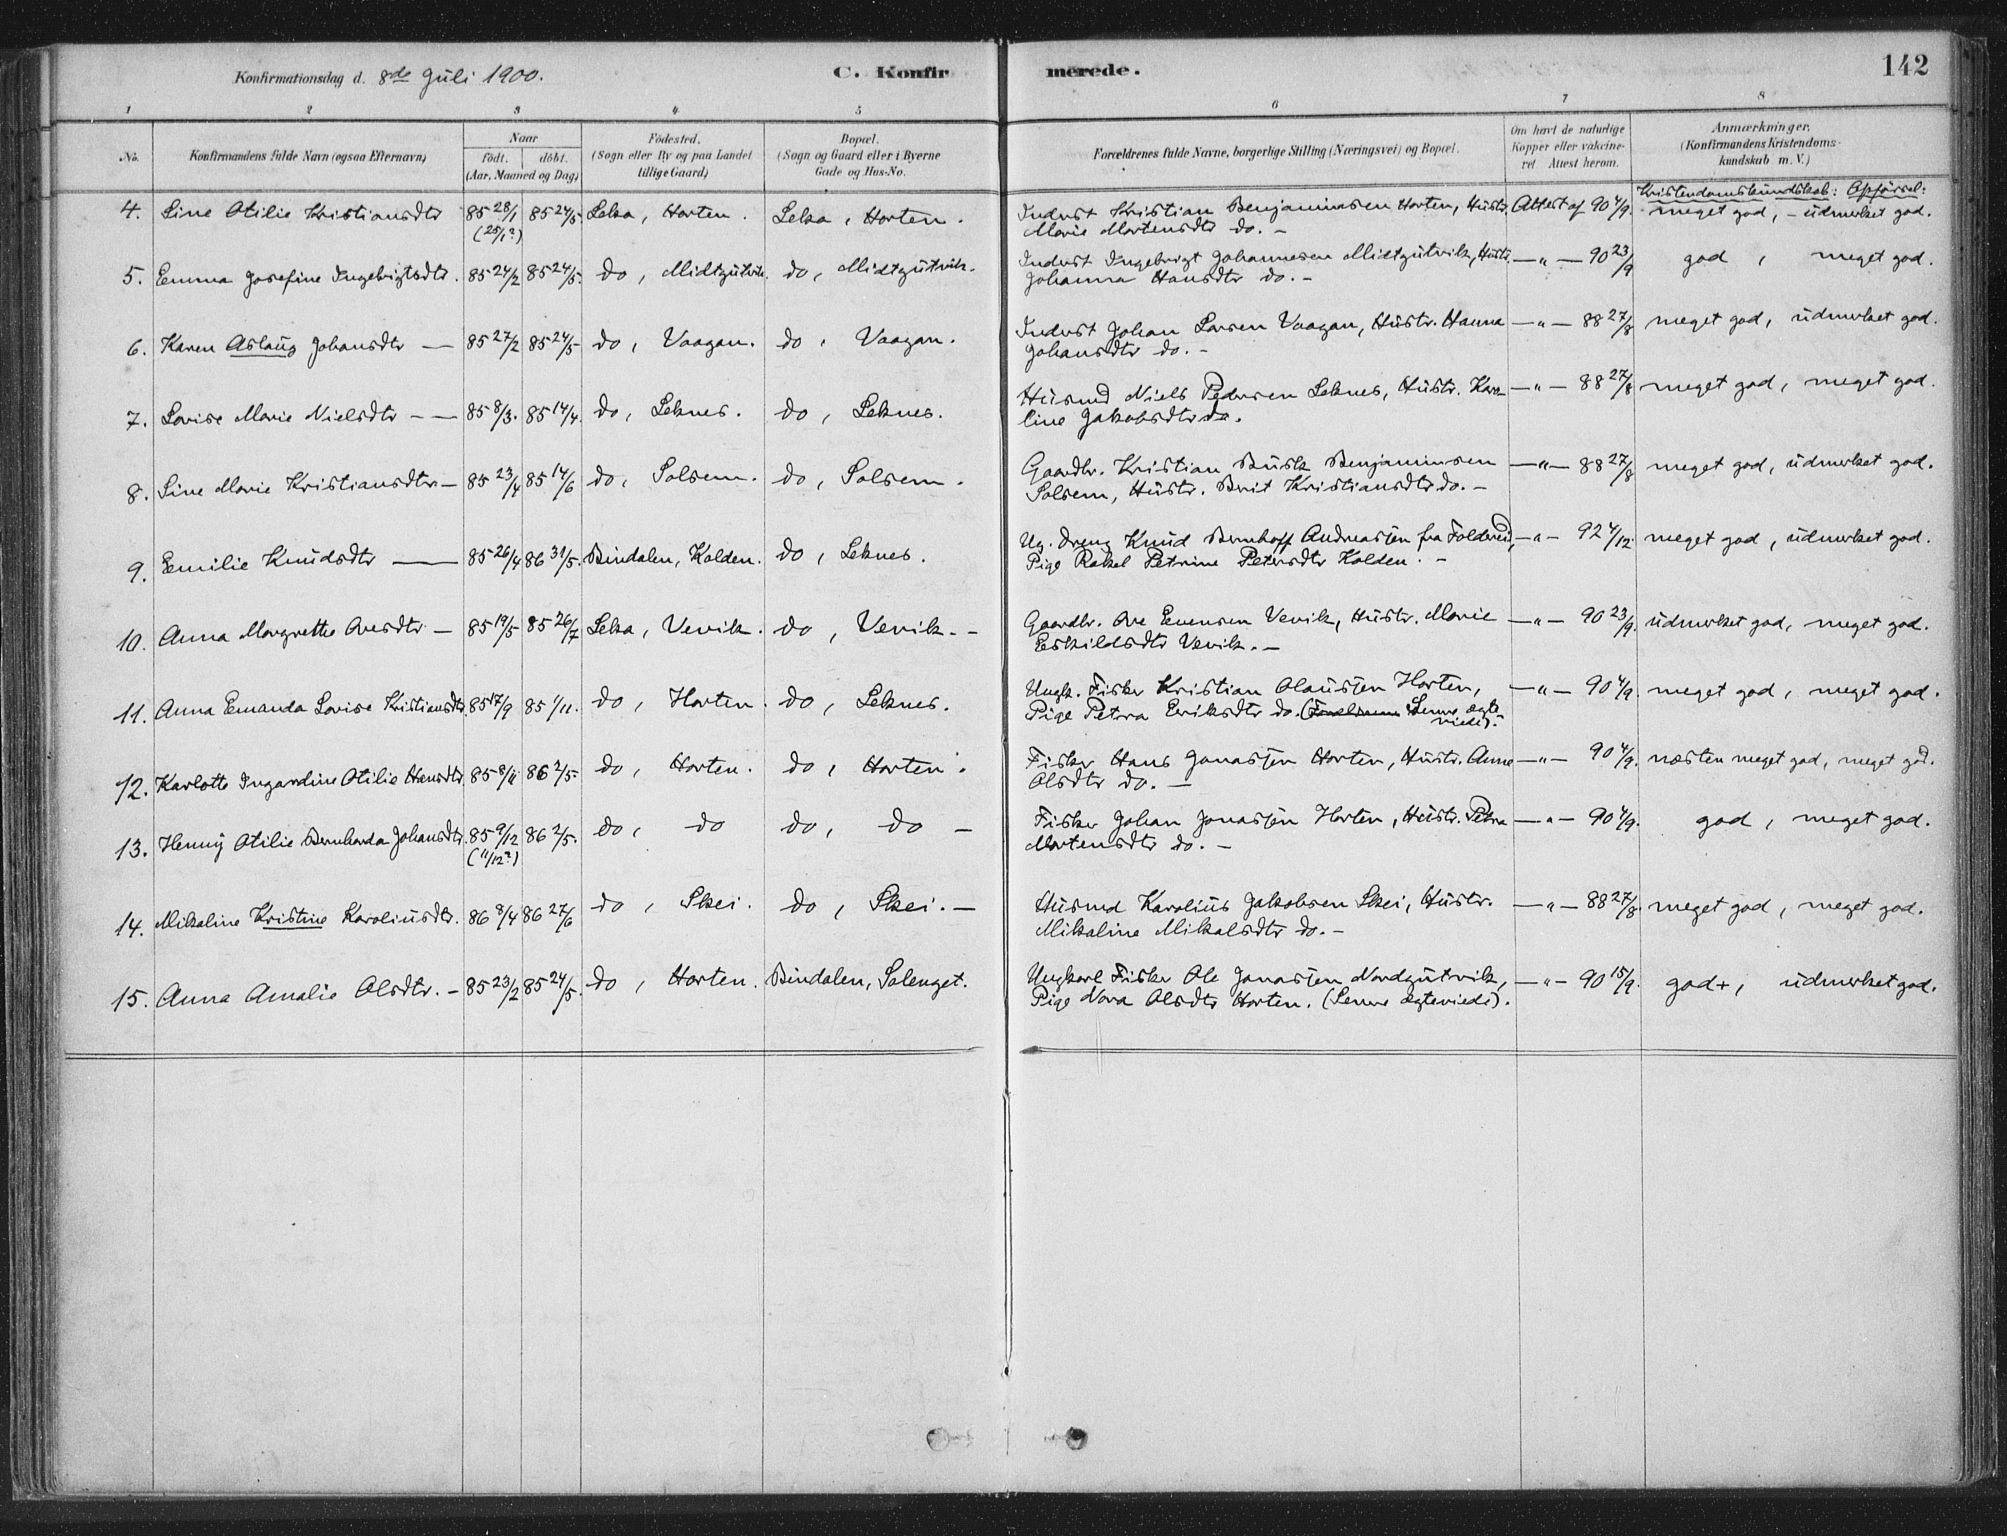 Konfirmationsdag d. 8de Juli 1900.
C. Konfirmerede.
142
1 2 3 4 5 6 7 8
No.
Konfirmandens fulde Navn (ogsaa Efternavn)
Naar
födt. döbt.
(Aar, Maaned og Dag)
Födested.
(Sogn eller By og paa Landet
tillige Gaard)
Bopæl.
(Sogn og Gaard eller i Byerne
Gade og Hus-No.
Forældrenes fulde Navne, borgerlige Stilling (Næringsvei) og Bopæl.
Om havt de naturlige
Kopper eller vakcine-
ret. Attest herom.
Anmærkninger.
(Konfirmandens Kristendoms-
kundskab m. V.)
Kristendomskundskab: Opførsel:
4. Line Otilie Kristiansdtr 85 28/1 85 24/5 Leka, Horten. Leka, Horten. Inderst Kristian Benjaminsen Horten, Hustr. Attest af 90 4/9. meget god, - udmerket god.
(25/1?) Marie Mortensdtr do. -
5. Emma Josefine Ingebrigtsdtr. 85 24/2 85 24/5. do, Midtgutvik. do, Midtgutvik. Inderst Ingebrigt Johannesen Midtgutvik, Hustr. — " — 90 23/9 god, meget god.
Johanna Hansdtr do. -
6. Karen Aslaug Johansdtr — 85 27/2 85 24/5 do, Vaagan. do, Vaagan. Inderst Johan Larsen Vaagan, Hustr. Hanna — " — 88 27/8 meget god, udmerket god.
Johansdtr do. -
7. Lovise Marie Nielsdtr — 85 8/3. 85 14/4. do, Leknes. do, Leknes. Husmd Niels Pedersen Leknes, Hustr. Karo- — " — 88 27/8 meget god, meget god.
line Jakobsdtr do.
8. Line Marie Kristiansdtr — 85 23/4 85 14/6 do, Solsem. do, Solsem. Gaardbr. Kristian Busk Benjaminsen — " — 88 27/8 meget god, udmerket god.
Solsem, Hustr. Brit Kristiansdtr do. -
9. Emilie Knudsdtr — 85 26/4 86 31/5. Bindalen, Kolden. do, Leknes. Ug. dreng Knud Bernhoff Andreassen fra Foldereid, — " — 92 4/12. meget god, udmerket god.
Pige Rakel Petrine Petersdtr Kolden. -
10. Anna Margrethe Ovesdtr — 85 19/5 85 26/7 Leka, Vevik. do, Vevik. - Gaardbr. Ove Evensen Vevik, Hustr. Marie — " — 90 23/9. udmerket god, meget god.
Eskildsdtr Vevik. -
11. Anna Emanda Lovise Kristiansdtr. 85 17/9 85 1/11. do, Horten. do, Leknes. Ungk. Fisker Kristian Olaussen Horten, — " — 90 4/9. meget god, meget god.
Pige Petra Eriksdtr do. (Senere ægte-
viede).
12. Karlotte Ingardine Otilie Hansdtr. 85 8/11 86 2/5. do, Horten. do, Horten. Fisker Hans Jonassen Horten, Hustr. Anne — " — 90 4/9. næsten meget god, meget god.
Olsdtr do. —
13. Henny Otilie Bernharda Johansdtr. 85 9/12 86 2/5. do, do do, do - Fisker Johan Jonassen Horten, Hustr. Petra — " — 90 4/9. god, meget god.
(11/12?) Mortensdtr do. -
14. Mikaline Kristine Karoliusdtr. 86 8/4 86 27/6 do, Skei. do, Skei. — Husmd Karolius Jakobsen Skei, Hustr. — " — 88 27/8. meget god, meget god.
Mikaline Mikalsdtr do. -
15. Anna Amalie Olsdtr. — 85 23/2 85 24/5. do, Horten. Bindalen, Solenget. Ungkarl Fisker Ole Jonassen Nordgutvik, — " — 90 15/9. god+, udmerket god.
Pige Nora Olsdtr Horten. (Senere ægteviede).